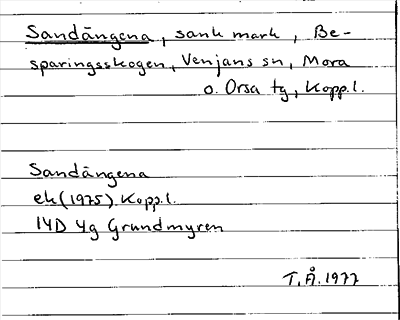 Sandängena, sank mark, Be-
sparingsskogen, Venjans sn, Mora
o. Orsa tg, Kopp.l.
Sandängena
ek (1975) Kopp.l.
14D 4g Grundmyren
T.Å. 1977